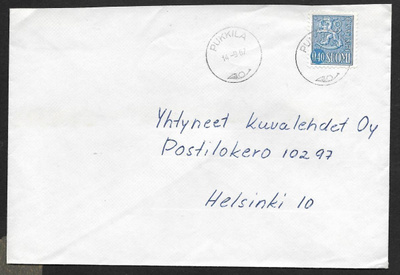 PUKKILA
0,40 SUOMI
Yhtyneet Kuvalehdet Oy
Postilokero 10297
Helsinki 10